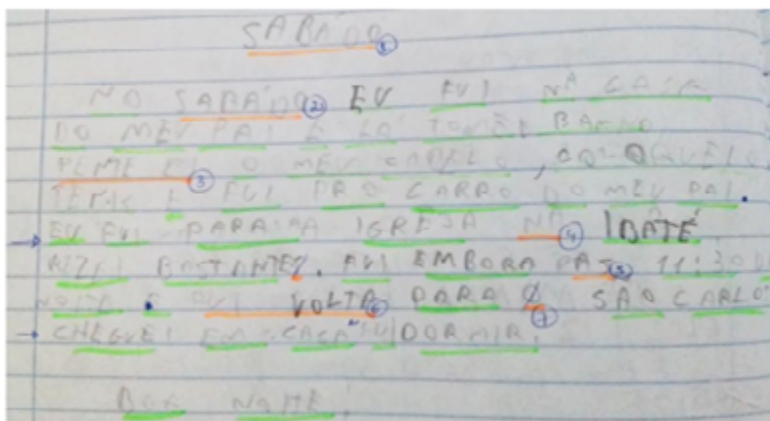 SABADO 1
NO SABADO 2 EU FUI NA CASA
DO MEU PAI E LÁ TOMEI BANHO
PENTE EI 3 O MEU CABELO, COLOQUEI O
E FUI PRO CARRO DO MEU PAI.
→ EU FUI PARA A IGREJA NA 4 IBATÉ
BASTANTE. FUI EMBORA 5 11:30 DA
NOITE E FUI VOLTA 6 PARA 7 SÃO CARLO
→ CHEGUEI EM CASA FUI DORMIR.
BOA NOITE!